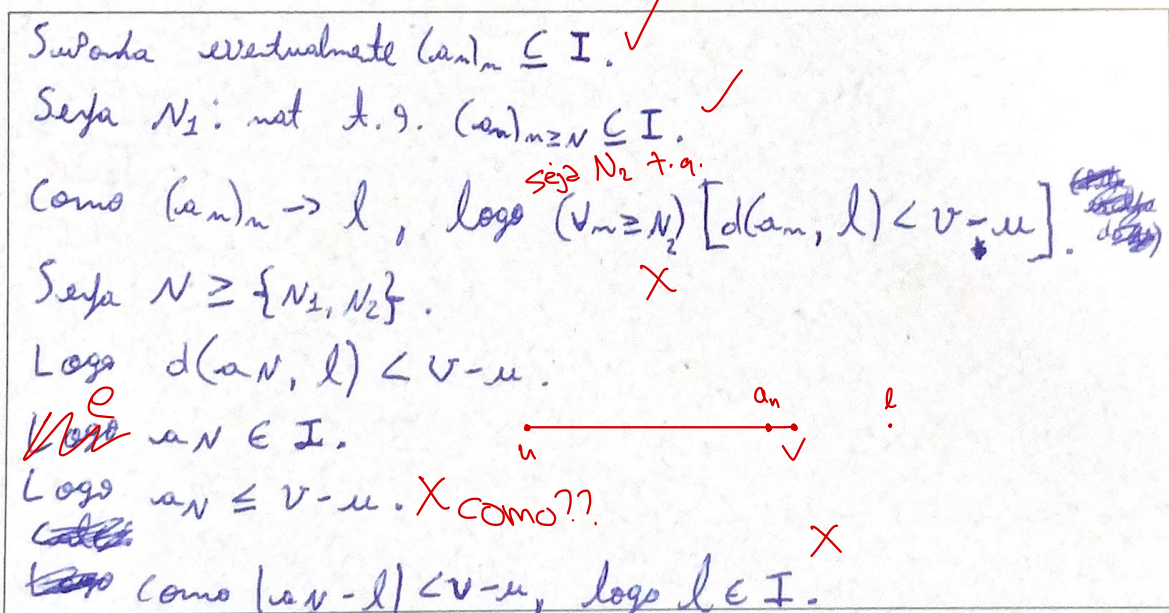 Suponha eventualmente (aₙ)ₙ ⊆ I. ✓
Seja N₁ : nat t.q. (aₙ)ₙ≥N ⊆ I. ✓
seja N₂ t.q.
Como (aₙ)ₙ → l, logo (∀n ≥ N₂) [d(aₙ, l) < v - u].
X
Seja N ≥ {N₁, N₂}.
Logo d(aN, l) < v - u.
aₙ l
e aN ∈ I.
u v
Logo aN ≤ v - u. X como??
X
como |aN - l| < v - u, logo l ∈ I.